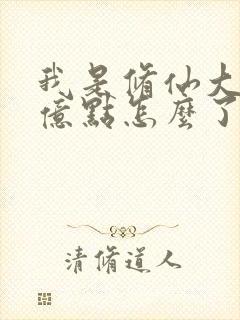 我是脩仙大
億點怎麼了
清脩道人